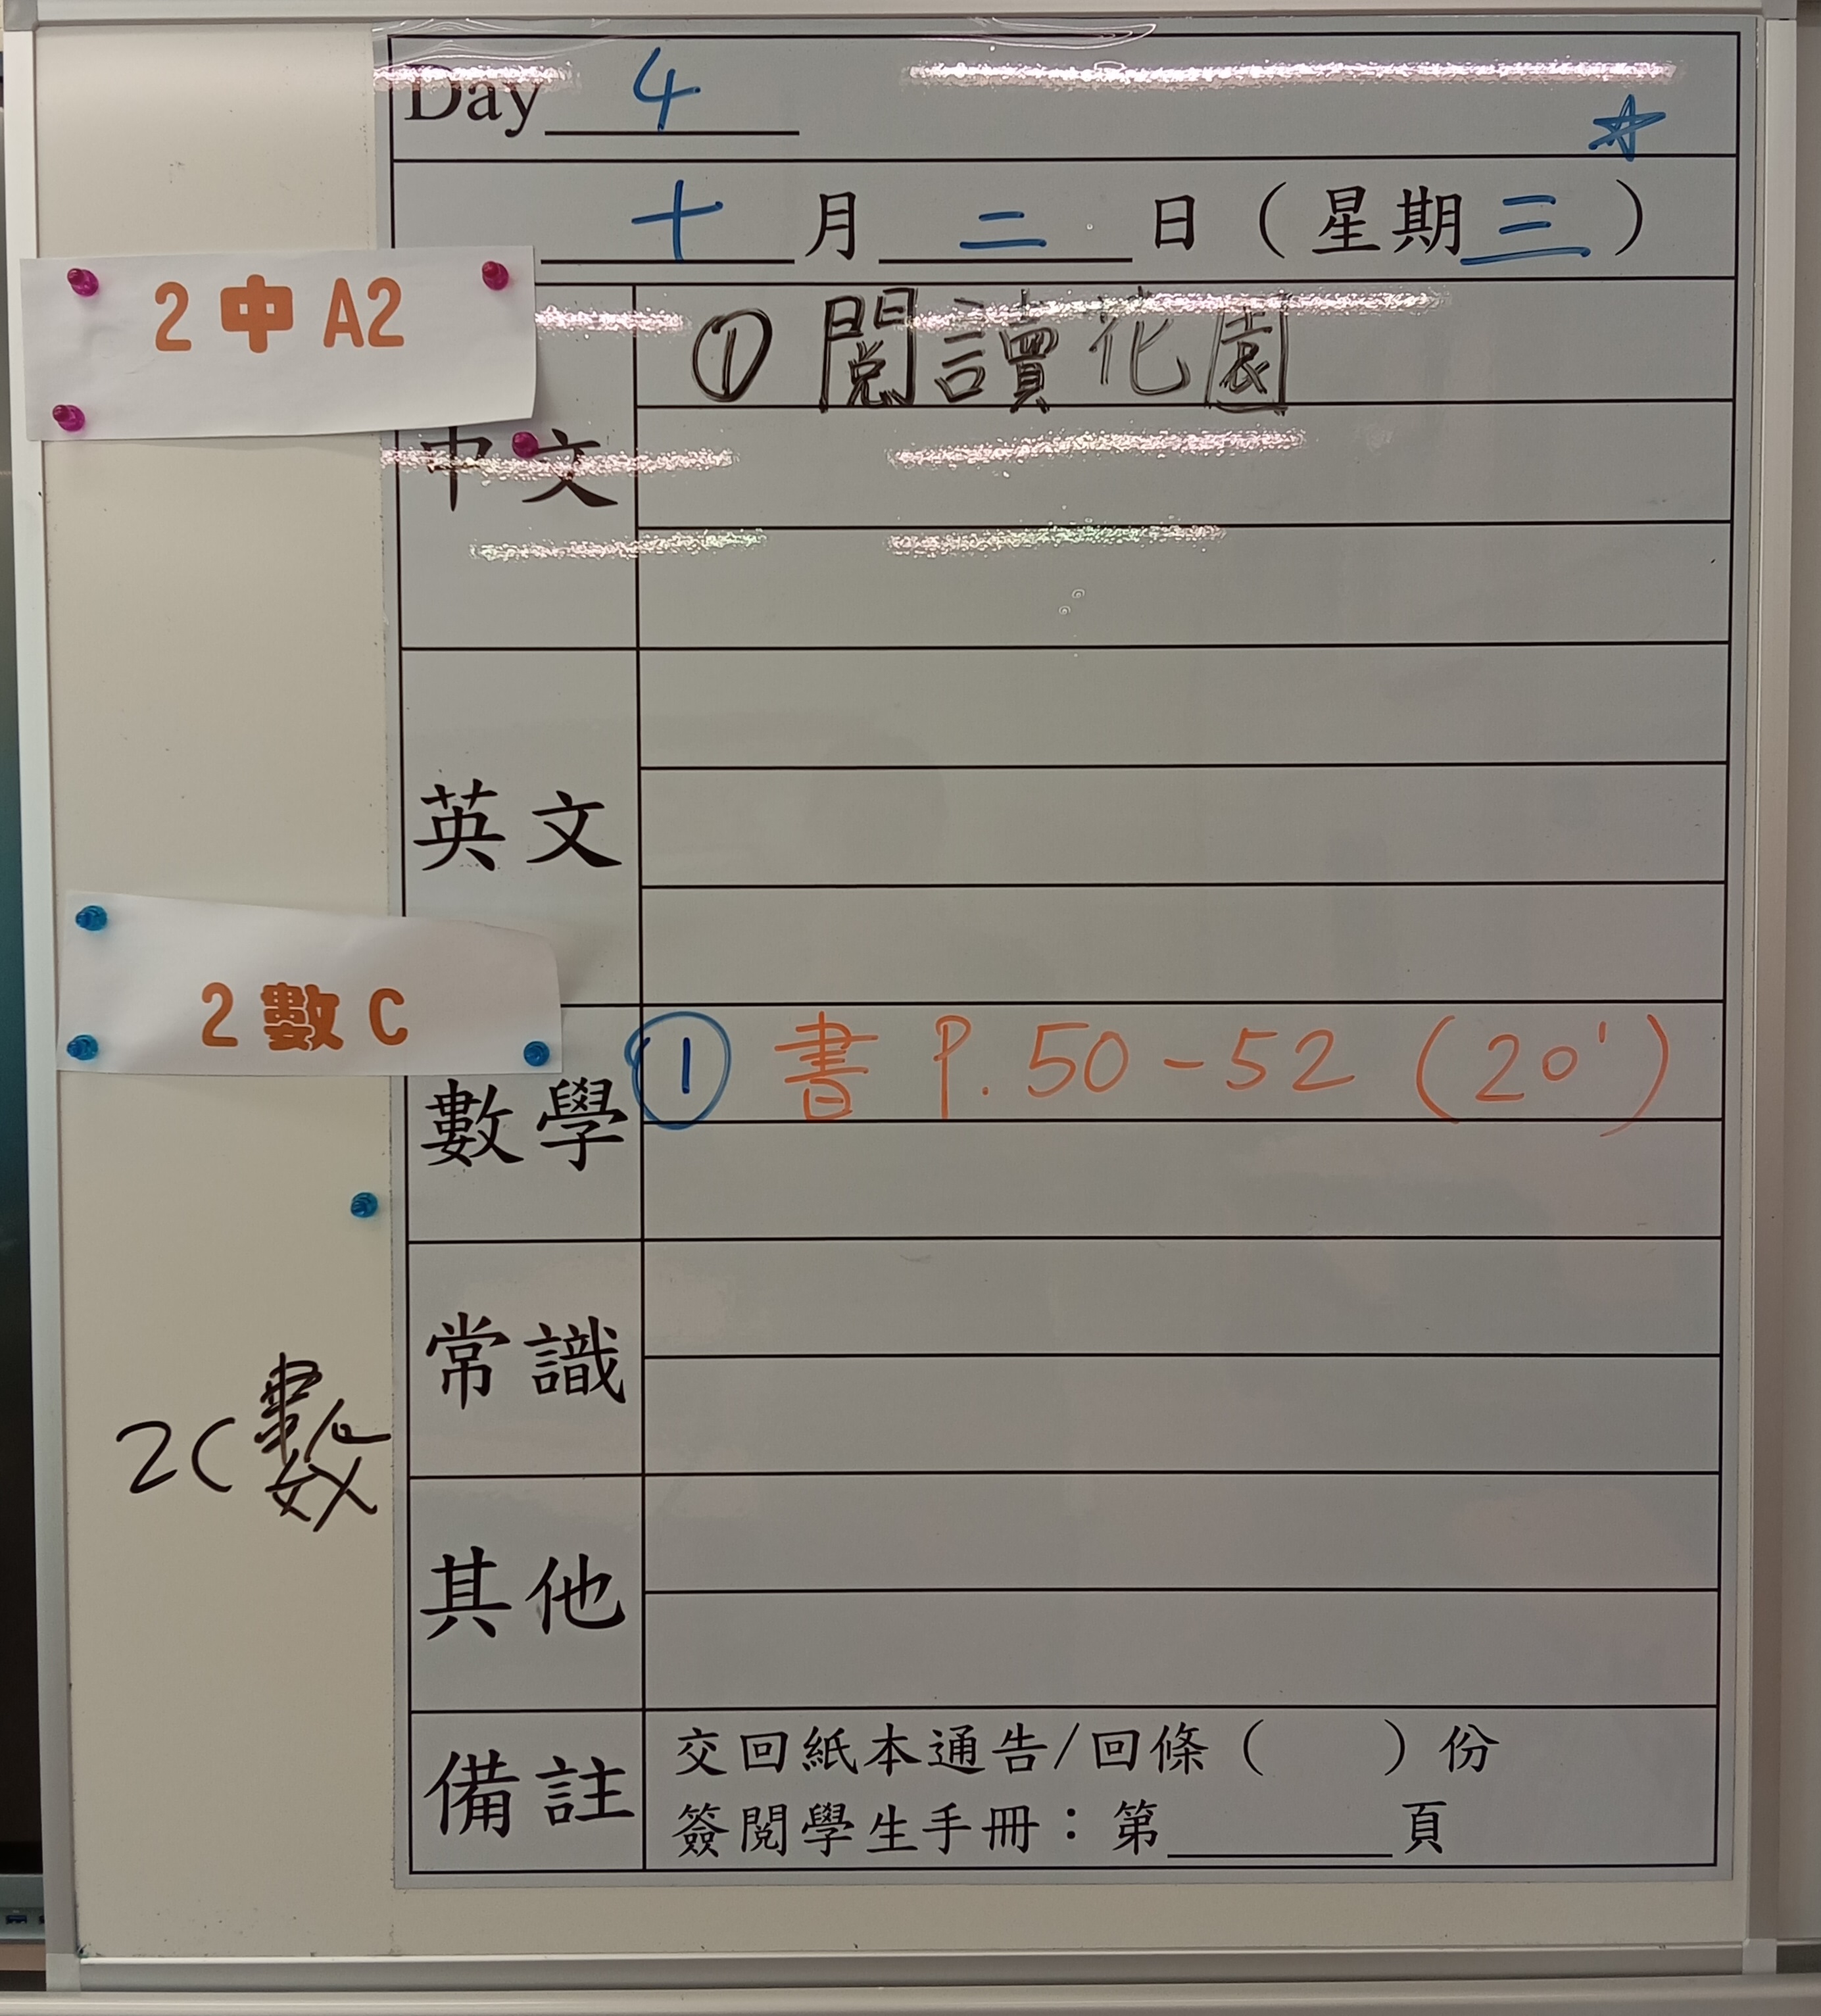 Day 4
十月二日（星期三）
2 中 A2
中文
① 閱讀花園
英文
2 數 C
數學
① 書 P. 50-52 (20')
常識
2C數
其他
備註
交回紙本通告/回條（　　）份
簽閱學生手冊：第______頁